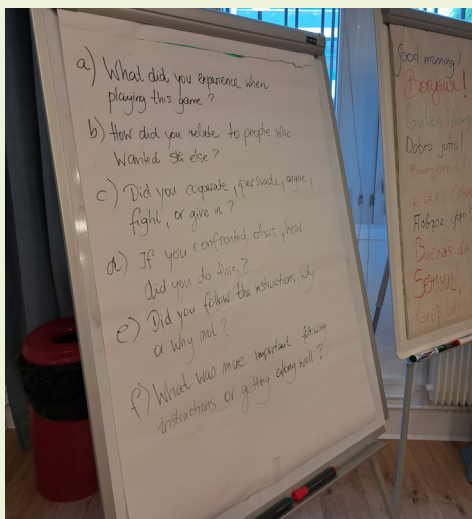 a) What did you experience when
playing this game?
b) How did you relate to people who
wanted sth else?
c) Did you cooperate, persuade, argue,
fight, or give in?
d) If you confronted others, how
did you do this?
e) Did you follow the instructions, why
or why not?
f) What was more important following
instructions or getting along well?
Good morning!
Bonjour!
Guten
Dobro jutro!
Buongiorno
Доброе утро
Buenas
Servus!
Grüß